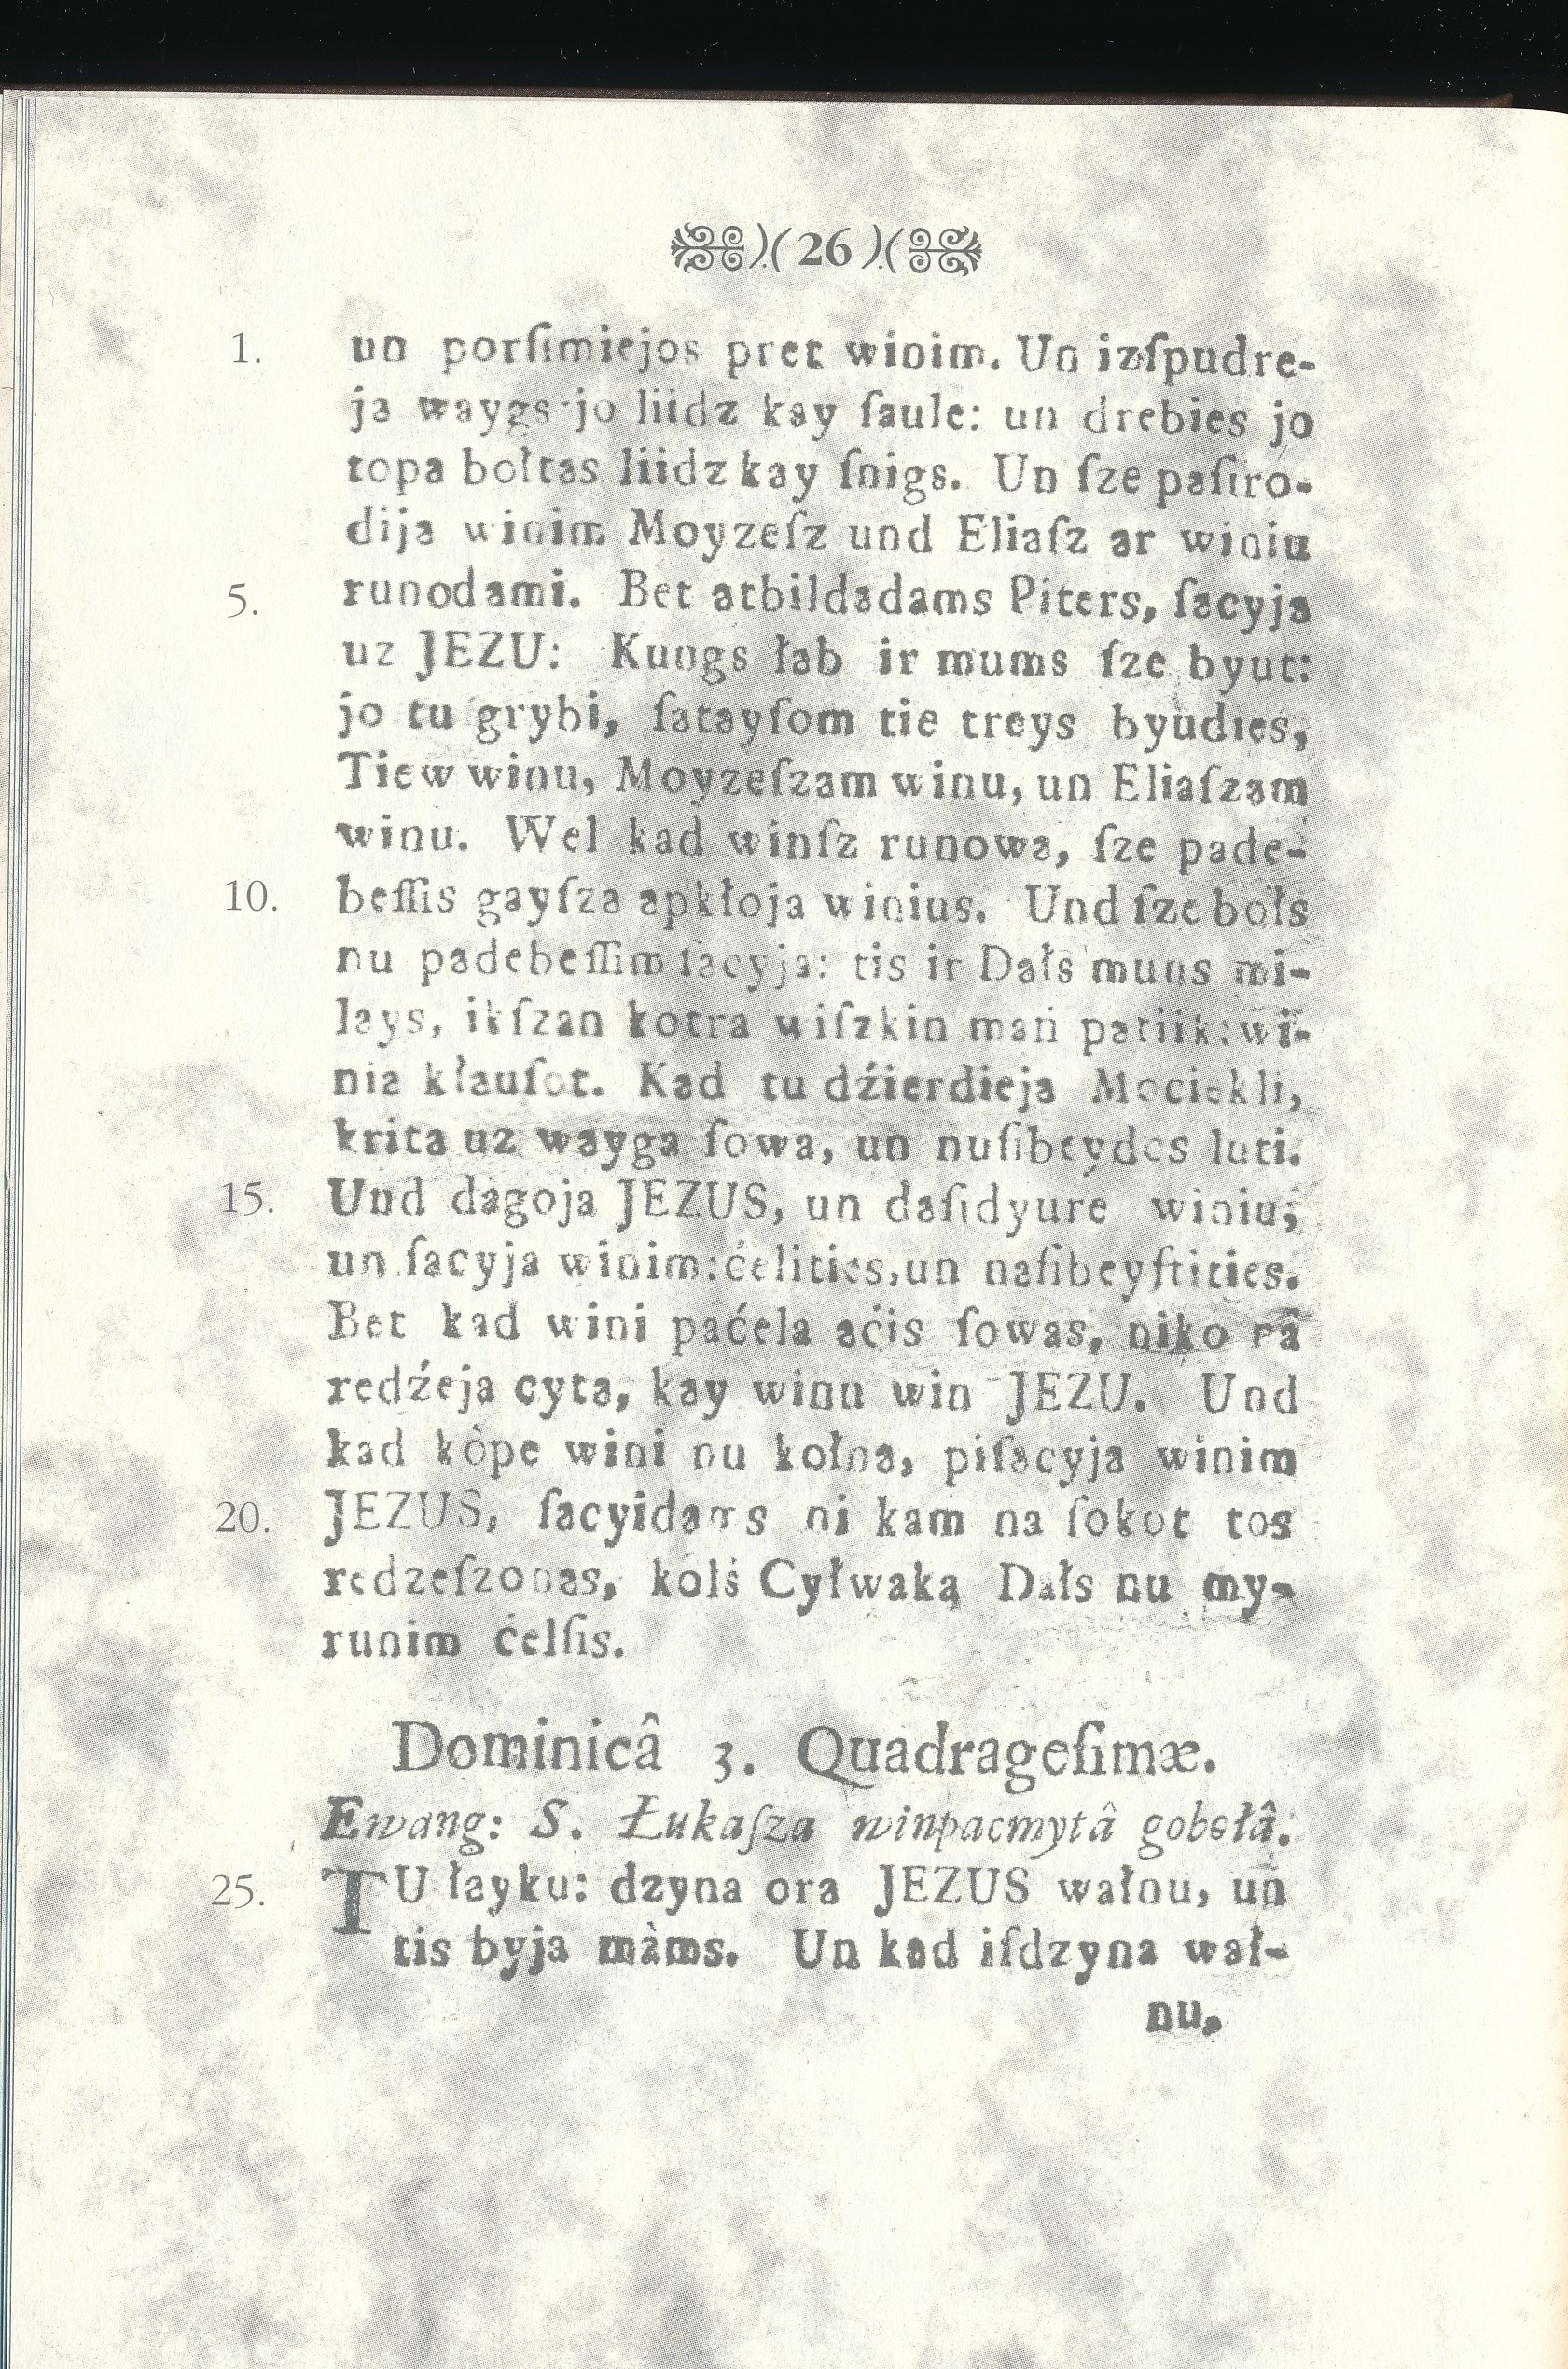 )( 26 )(
1. un porſimiejos pret winim. Un izſpudre-
ja waygs jo liidz kay ſaule: un drebies jo
topa bołtas liidz kay ſnigs. Un ſze paſiro-
dija winim Moyzeſz und Eliaſz ar winiu
5. runodami. Bet atbildadams Piters, ſacyja
uz JEZU: Kungs łab ir mums ſze byut:
jo tu grybi, ſatayſom tie treys byudies,
Tiew winu, Moyzeſzam winu, un Eliaſzam
winu. Wel kad winſz runowa, ſze pade-
10. beſſis gayſza apkłoja winius. Und ſze bołs
nu padebeſſim ſacyja: tis ir Dałs muns mi-
lays, ikſzan kotra wiſzkin mań patiik: wi-
nia kłauſot. Kad tu dźierdieja Mociekli,
krita uz wayga ſowa, un nuſibeydos luti.
15. Und dagoja JEZUS, un daſidyure winiu;
un ſacyja winim: ćelities, un naſibeyſtities.
Bet kad wini paćela aćis ſowas, niko na
redźeja cyta, kay winu win JEZU. Und
kad kòpe wini nu kołna, piſacyja winim
20. JEZUS, ſacyidams ni kam na ſokot tos
redzeſzonas, kolś Cyłwaka Dałs nu my-
runim ćelſis.
Dominicâ 3. Quadrageſimæ.
Ewang: S. Łukaſza winpacmytâ gobołâ.
25. TU łayku: dzyna ora JEZUS wałnu, un
tis byja màms. Un kad iſdzyna wał-
nu,